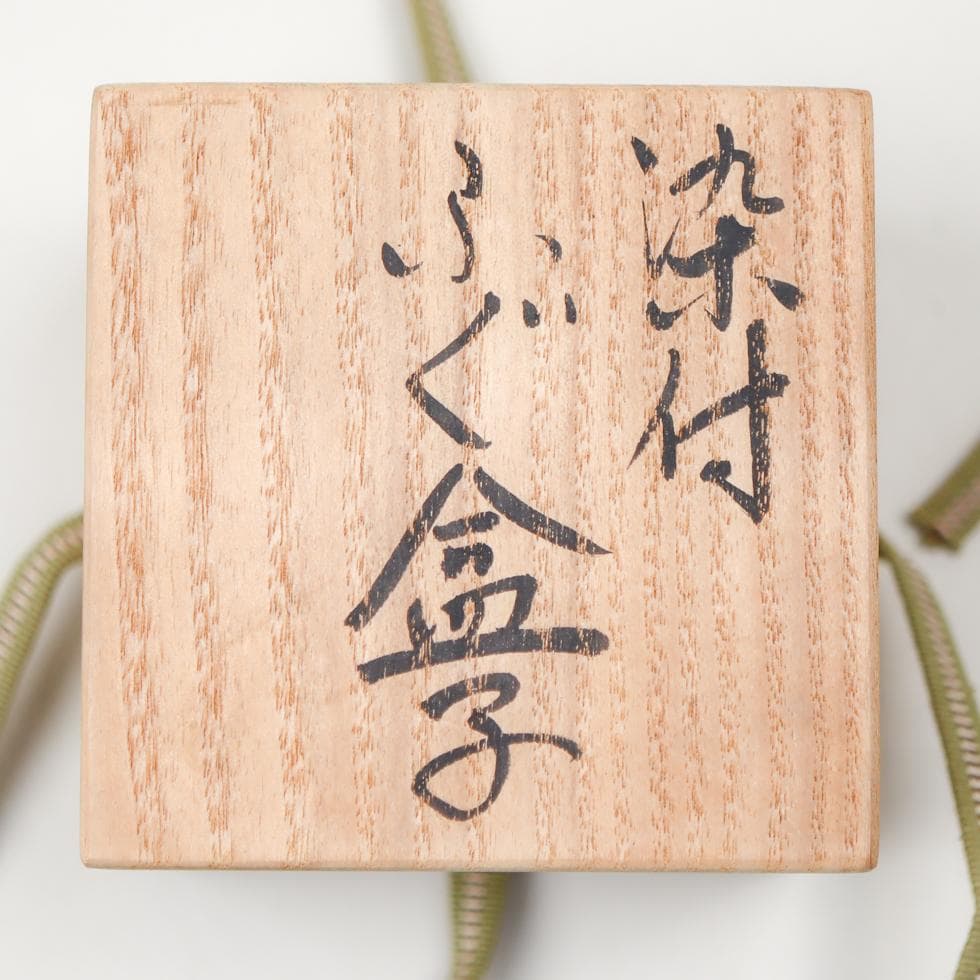 染付
ふぐ盒子